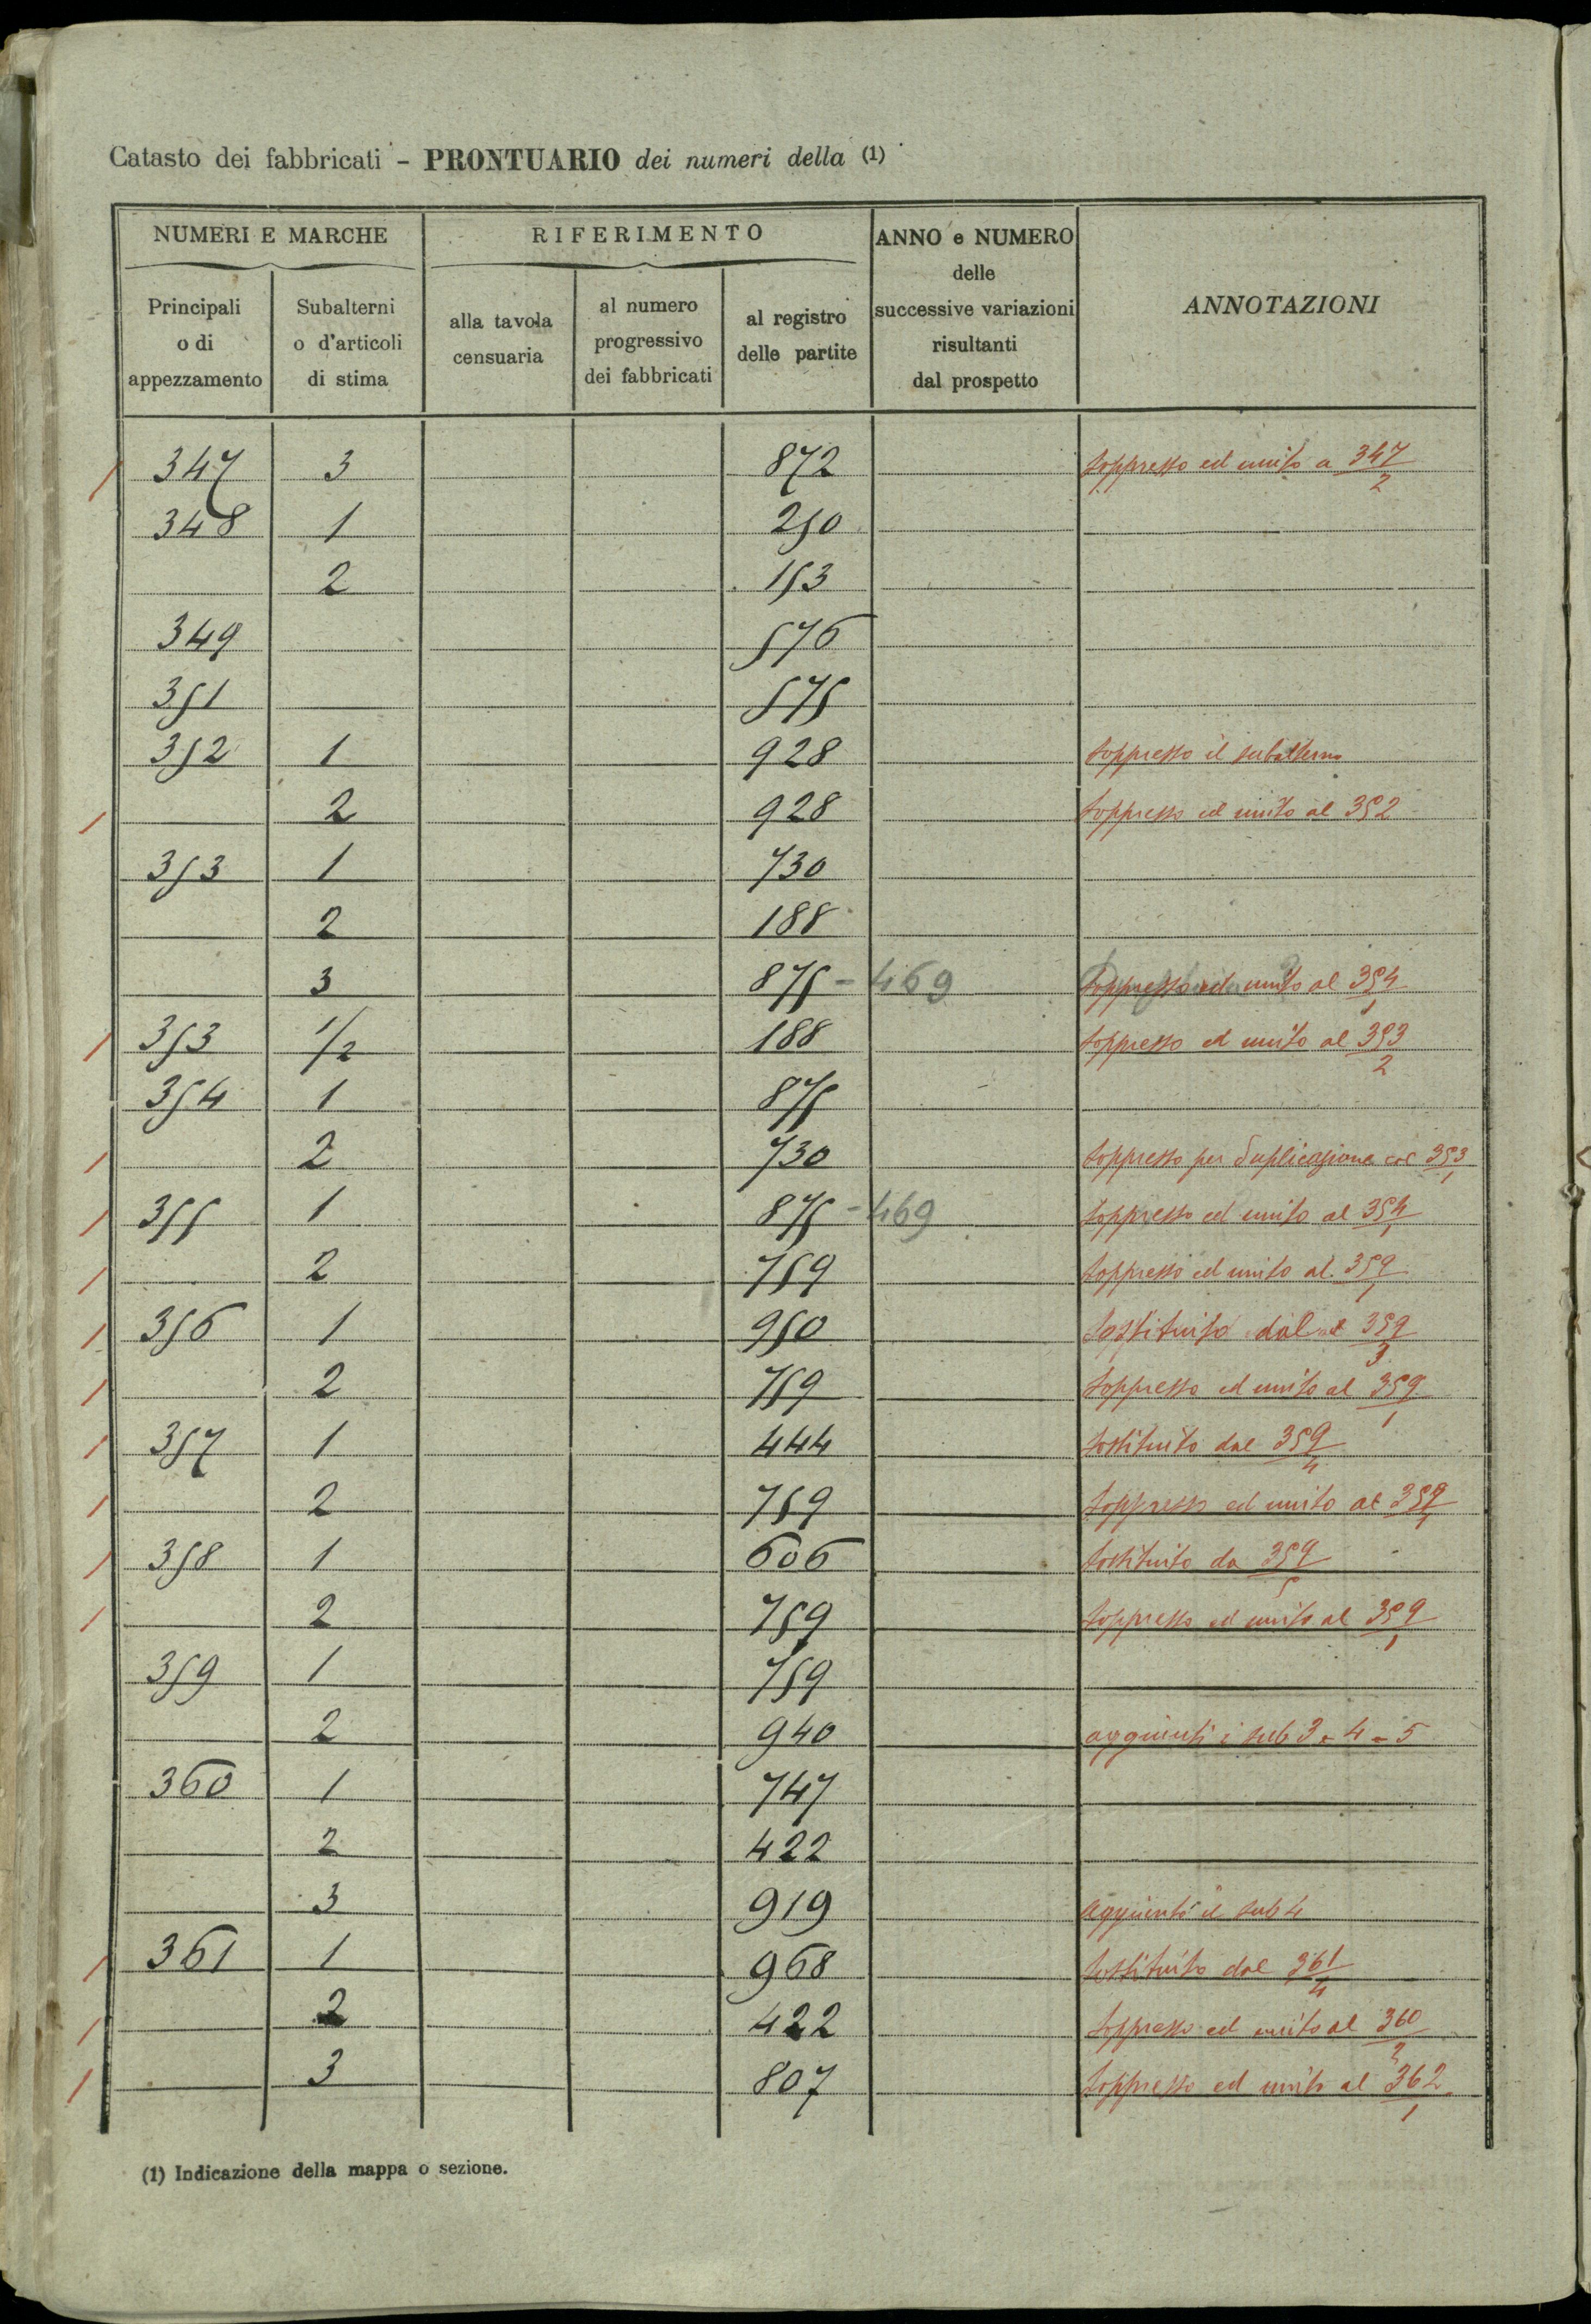 Catasto dei fabbricati - PRONTUARIO dei numeri della (1)
NUMERI E MARCHE
RIFERIMENTO
ANNO e NUMERO
delle
successive variazioni
risultanti
dal prospetto
ANNOTAZIONI
Principali
o di
appezzamento
Subalterni
o d'articoli
di stima
alla tavola
censuaria
al numero
progressivo
dei fabbricati
al registro
delle partite
347 3 872 soppresso ed unito a 347/2
348 1 250
2 153
349 576
351 575
352 1 928 soppresso il subalterno
2 928 soppresso ed unito al 352
353 1 730
2 188
3 875 - 469 soppresso ed unito al 354/1
353 1/2 188 soppresso ed unito al 353/2
354 1 875
2 730 soppresso per duplicazione col 353/1
355 1 875 - 469 soppresso ed unito al 354/1
2 759 soppresso ed unito al 359/1
356 1 950 sostituito dal 359/3
2 759 soppresso ed unito al 359/1
357 1 444 sostituito dal 359/4
2 759 soppresso ed unito al 359/1
358 1 606 sostituito da 359/5
2 759 soppresso ed unito al 359/1
359 1 759
2 940 aggiunti i sub 3 - 4 - 5
360 1 747
2 422
3 919 aggiunto il sub 4
361 1 968 sostituito dal 361/4
2 422 soppresso ed unito al 360/2
3 807 soppresso ed unito al 362/1
(1) Indicazione della mappa o sezione.